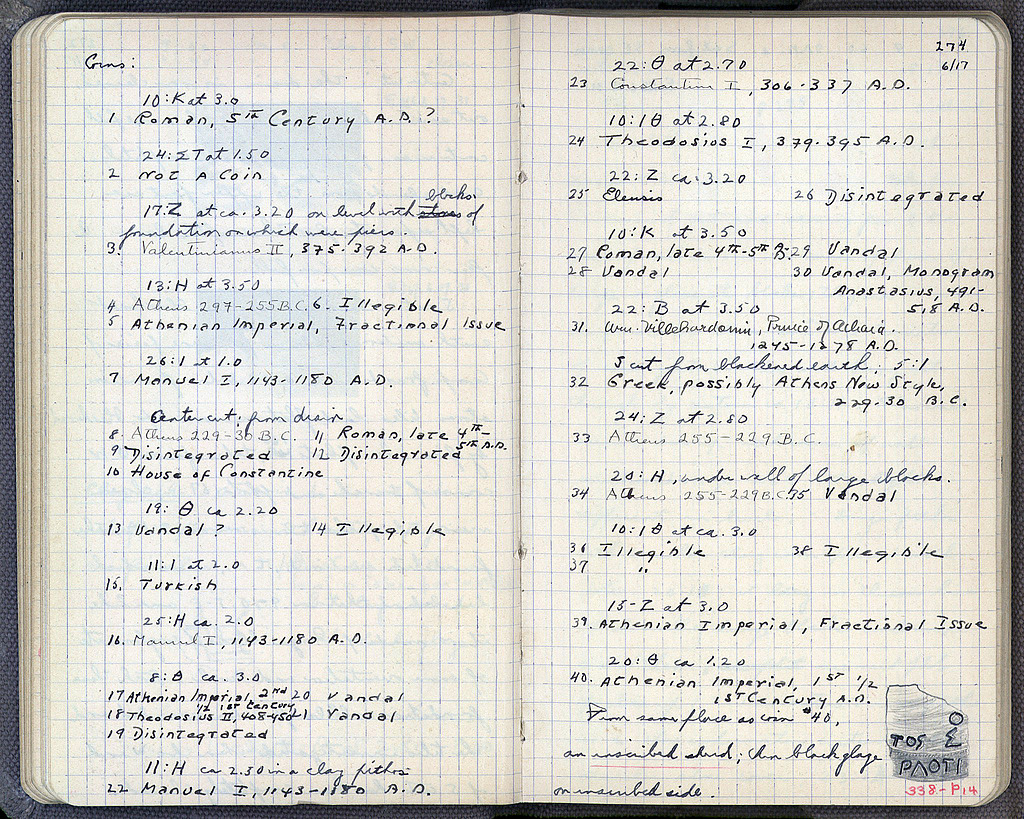 Coins:
10:K at 3.0
1 Roman, 5th Century A.D.?
24:ΣT at 1.50
2 Not A Coin
blocks
17:Z at ca. 3.20 on level with stones of
foundation on which were piers.
3. Valentinianus II, 375-392 A.D.
13:H at 3.50
4 Athens 297-255 B.C. 6. Illegible
5 Athenian Imperial, Fractional Issue
26:1 at 1.0
7 Manuel I, 1143-1180 A.D.
Center cut, from drain
8. Athens 229-30 B.C. 11 Roman, late 4th-
5th A.D.
9 Disintegrated 12 Disintegrated
10 House of Constantine
19: Θ ca 2.20
13 Vandal ? 14 Illegible
11:1 at 2.0
15. Turkish
25:H ca. 2.0
16. Manuel I, 1143-1180 A.D.
8:Θ ca. 3.0
17 Athenian Imperial, 2nd 20 Vandal
1/2 1st Century
18 Theodosius II, 408-450 21 Vandal
19 Disintegrated
11:H ca 2.30 in a clay pithos
22 Manuel I, 1143-1180 A.D.
274
6/17
22:Θ at 2.70
23 Constantine I, 306-337 A.D.
10:1Θ at 2.80
24 Theodosios I, 379-395 A.D.
22:Z ca. 3.20
25 Eleusis 26 Disintegrated
10:K at 3.50
27 Roman, late 4th-5th A.D. 29 Vandal
28 Vandal 30 Vandal, Monogram
Anastasius, 491-
518 A.D.
22:B at 3.50
31. Wm. Villehardouin, Prince of Achaia.
1245-1278 A.D.
S cut from blackened earth: 5:1
32 Greek, possibly Athens New Style,
229-30 B.C.
24:Z at 2.80
33 Athens 255-229 B.C.
20:H, under wall of large blocks.
34 Athens 255-229 B.C. 35 Vandal
10:1Θ at ca. 3.0
36 Illegible 38 Illegible
37 "
15-Z at 3.0
39. Athenian Imperial, Fractional Issue
20:Θ ca 1.20
40. Athenian Imperial, 1st 1/2
1st Century A.D.
From same place as coin #40,
an inscribed sherd; thin black glaze
on inscribed side.
Ο
ΤΟΣ Σ
ΡΛΟΤΙ
338-P14